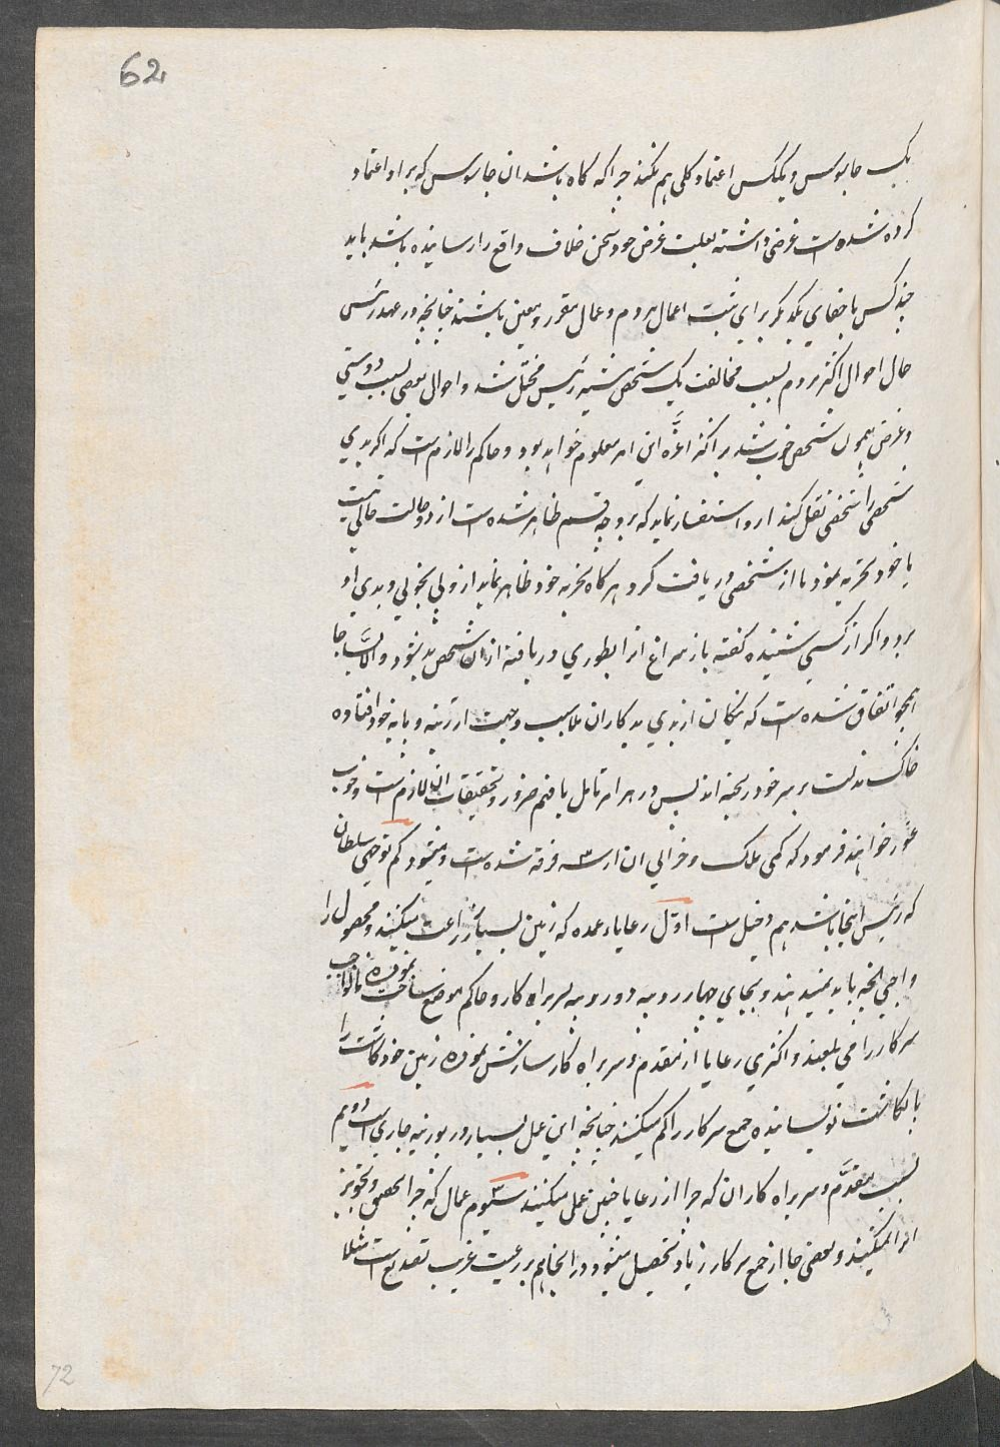 62
یک جاسوس و یک کس اعتماد کلی هم نکند چرا که گاه باشد ان جاسوس که بر او اعتماد
کرده شده است غرضی داشته بعلت غرض خود سخن خلاف واقع را رسانیده باشد باید
چند کس باخفای یکدیکر برای ثبت اعمال مردم و عمال مقرر و معین باشند چنانچه در عهد رئیس
حال احوال اکثر مردم بسبب مخالفت یک شخص شبیه رئیس مختل شد و احوال بعضی بسبب دوستی
و غرض همون شخص خوب شد بر اکثر اعزّه این امر معلوم خواهد بود و حاکم را لازم است که اگر بدی
شخصی را شخصی نقل کند از و استفسار نماید که بر و چه قسم ظاهر شده است از دو حالت خالی نیست
یا خود تجربه نمود یا از شخصی دریافت کرد هرگاه تجربه خود ظاهر نماید از ولی بخوبی و بدی او
برد و اگر از کسی شنیده گفته باز سراغ انرا بطوری دریافته ازان شخص بد بشود و الا بسا جا
همچو اتفاق شده است که نیکان از بدی بدکاران بلا سبب و جهت از رتبه و پایه خود افتاده
خاک مذلت بر سر خود ریخته اند پس در هر امر تامل یا فهم ضرور و تحقیقات ان لازم است و خوب
غور خواهند فرمود که کمی ملک و خرابی ان از سه فرقه شده است و میشود کم توجهی سلطان
که رئیس اینجا باشد هم دخیل است اوّل رعایاء عمده که زمین بسیار زراعت میکنند و محصول را
واجبی انچه باید نمیدهند و بجای چهار روپیه دو روپیه بسربراه کار و حاکم موضع ساخت نموده مالواجب
سرکار را می بلعند و اکثری رعایا از مقدم و سربراه کار سازش نموده زمین خود کاشت را
پاهیکاشت نویسانیده جمع سرکار را کم میکنند چنانچه این عمل بسیار در پورنیه جاری است دویم
بسبب مقدّم و سربراه کاران که چرا از رعایا خبن عمل میکنند سیوم عمال که چرا تحقیق و تجویز
انرا نمیکنند و بعضی جا از جمع سرکار زیاد تحصیل میشود در انجا هم بر رعیت غریب تصدیع است مثلا
72